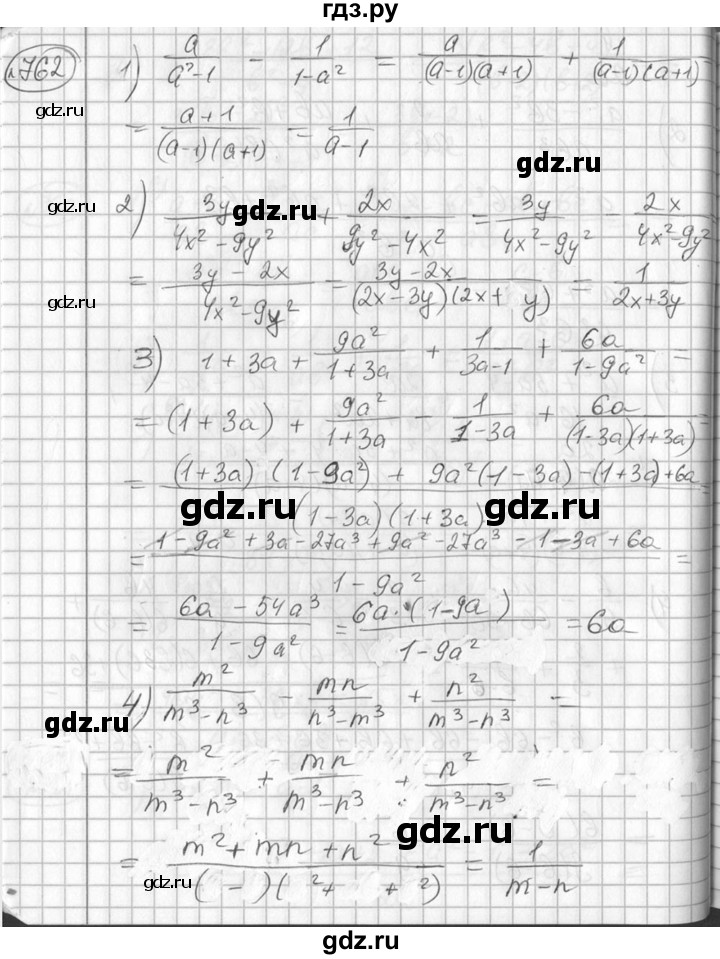 гдз.ру
№762
1) a/(a²-1) - 1/(1-a²) = a/((a-1)(a+1)) + 1/((a-1)(a+1))
gdz.ru
= (a+1)/((a-1)(a+1)) = 1/(a-1)
gdz.ru
gdz.ru
2) 3y/(4x²-9y²) + 2x/(9y²-4x²) = 3y/(4x²-9y²) - 2x/(4x²-9y²)
gdz.ru
gdz.ru
= (3y-2x)/(4x²-9y²) = (3y-2x)/((2x-3y)(2x+ y)) = 1/(2x+3y)
3) 1+3a + 9a²/(1+3a) + 1/(3a-1) + 6a/(1-9a²) =
gdz.ru
= (1+3a) + 9a²/(1+3a) - 1/(1-3a) + 6a/((1-3a)(1+3a)) =
= ((1+3a)(1-9a²) + 9a²(1-3a) - (1+3a) + 6a)/((1-3a)(1+3a))
gdz.ru
gdz.ru
gdz.ru
= (1-9a²+3a-27a³+9a²-27a³-1-3a+6a)/(1-9a²) =
= (6a-54a³)/(1-9a²) = (6a·(1-9a))/(1-9a²) = 6a
gdz.ru
4) m²/(m³-n³) - mn/(n³-m³) + n²/(m³-n³) =
gdz.ru
= m²/(m³-n³) + mn/(m³-n³) + n²/(m³-n³) =
gdz.ru
= (m²+mn+n²)/(( - )( ²+ + ²)) = 1/(m-n)
gdz.ru
gdz.ru